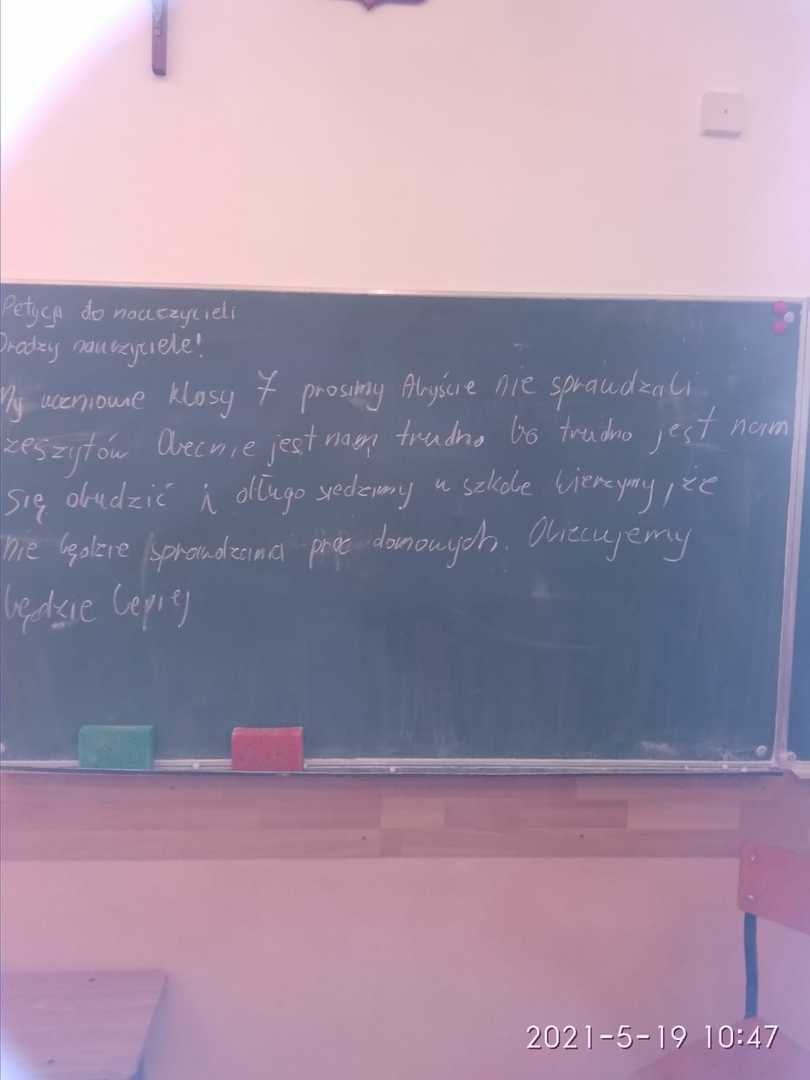 Petycja do nauczycieli
Drodzy nauczyciele!
My uczniowie klasy 7 prosimy Abyście nie sprawdzali
zeszytów Obecnie jest nam trudno bo trudno jest nam
się obudzić i długo siedzimy w szkole Wierzymy, że
nie będzie sprawdzania prac domowych. Obiecujemy
będzie lepiej
2021-5-19 10:47